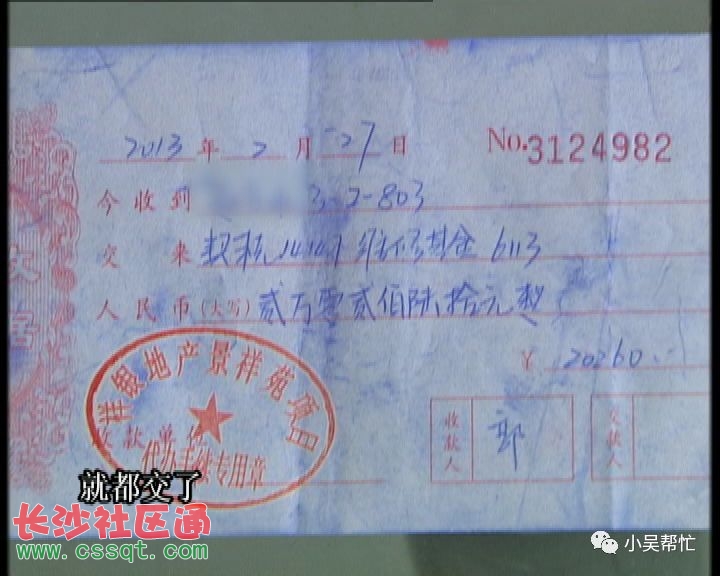 2013 年 2 月 27 日 No.3124982
今收到 3-2-803
交来 契税14147 维修基金 6113
人民币(大写) 贰万零贰佰陆拾元整
¥ 20260.
祥银地产景祥苑项目
收款单位
代办手续专用章
收款人 郭 交款人
就都交了
长沙社区通
www.cssqt.com
小吴帮忙